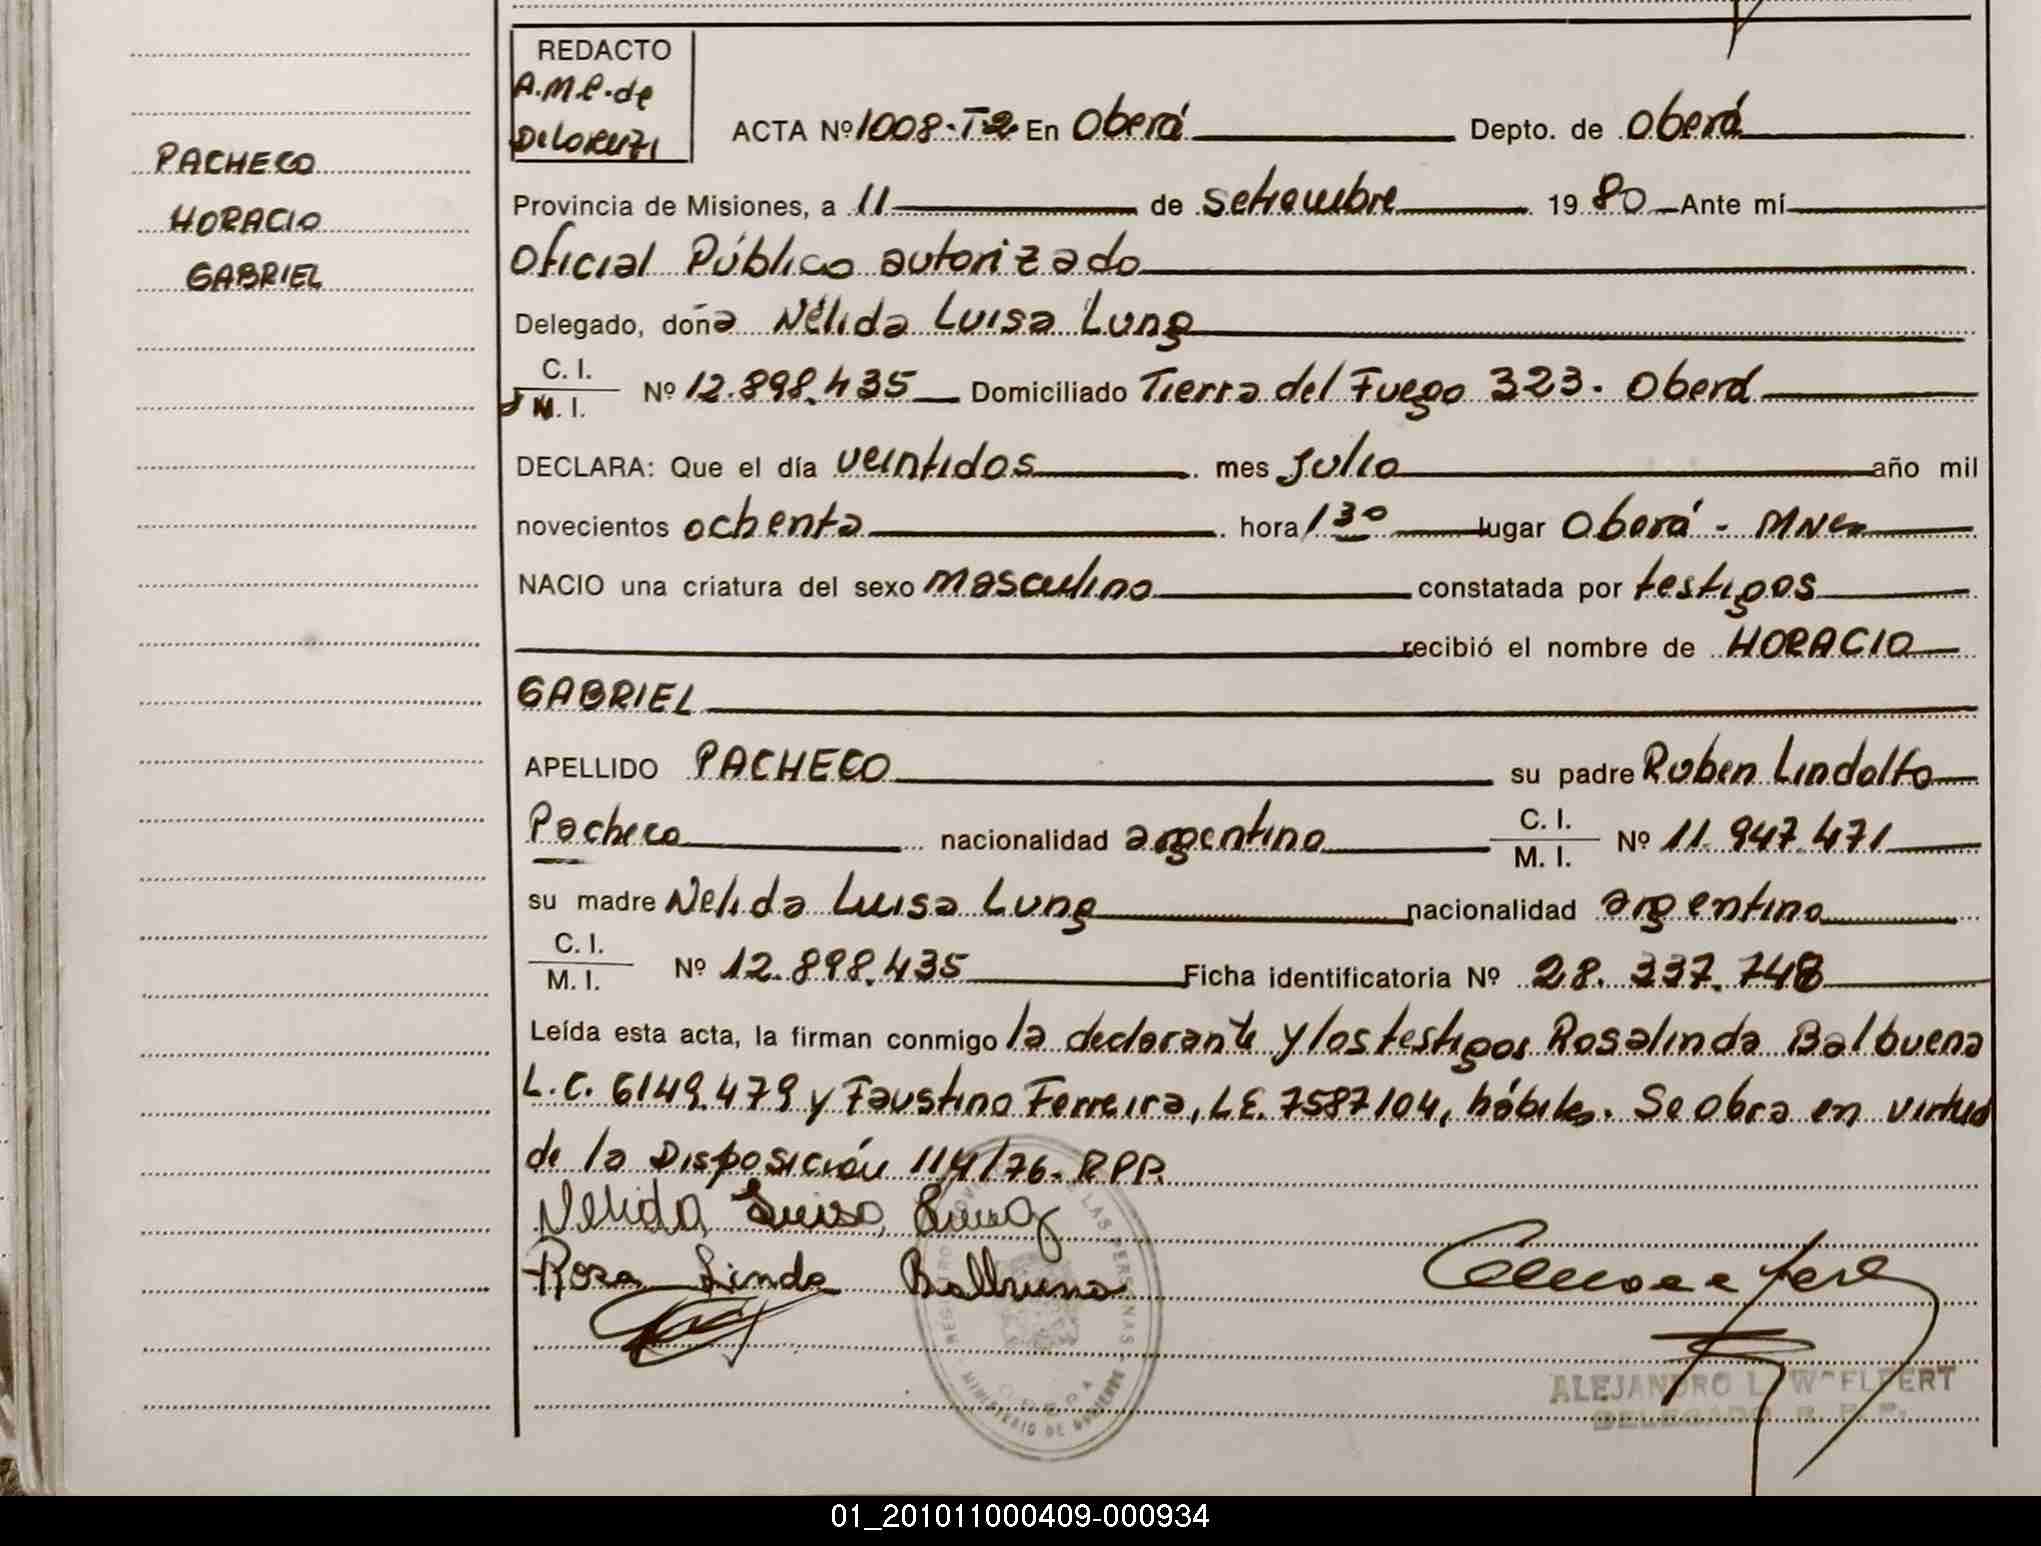 REDACTO
A.M.P. de
ACTA Nº 1008-T2 En Oberá Depto. de Oberá
PACHECO
HORACIO
GABRIEL
Provincia de Misiones, a 11 de setiembre 1980 Ante mí
Oficial Público autorizado
Delegado, doña Nélida Luisa Lung
C. I.
M. I. Nº 12.898.435 Domiciliado Tierra del Fuego 323. Oberá
DECLARA: Que el día veintidos mes julio año mil
novecientos ochenta hora 1 30 lugar Oberá - MNes
NACIO una criatura del sexo masculino constatada por testigos
recibió el nombre de HORACIO
GABRIEL
APELLIDO PACHECO su padre Ruben Lindolfo
Pacheco nacionalidad argentino C. I. M. I. Nº 11.947.471
su madre Nelida Luisa Lung nacionalidad argentina
C. I.
M. I. Nº 12.898.435 Ficha identificatoria Nº 28.337.748
Leída esta acta, la firman conmigo la declarante y los testigos Rosalinda Balbuena
L.C. 6149.479 y Faustino Ferreira, L.E. 7587104, hábiles. Se obra en virtud
de la Disposición 114/76. RPP.
Nelida Luisa Lung
Rosa Linda Balbuena
LAS PERSONAS
MINISTERIO DE GOBIERNO
OBERA
ALEJANDRO L.
DELEGADO R. P. P.
01_201011000409-000934